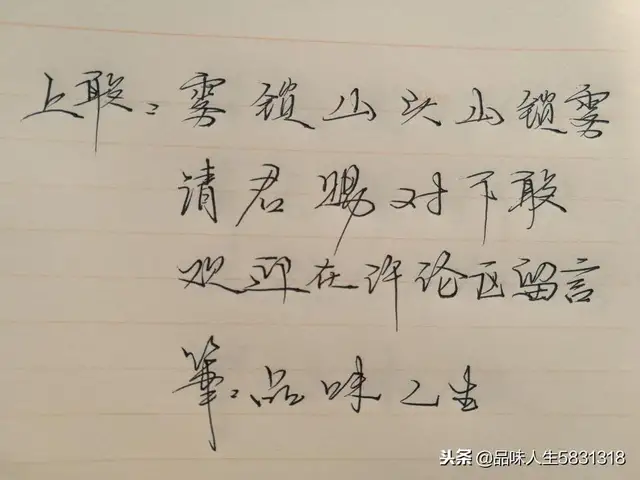 上联：雾锁山头山锁雾
请君赐对下联
欢迎在评论区留言
笔：品味人生
头条 @品味人生5831318